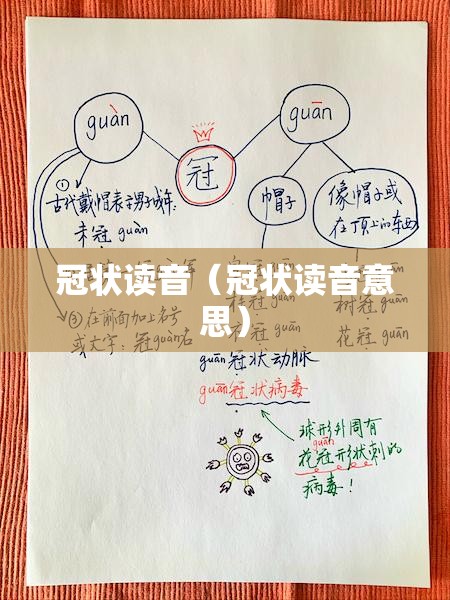 guàn
guān
冠
帽子
像帽子或
在顶上的东西
①
古代戴帽表示男子成年:
未冠 guàn
冠状读音（冠状读音意
思）
③在前面加上名号
或文字: 冠guàn名
树冠 guān
花冠 guān
guān冠状动脉
guān冠状病毒
球形外周有
guān
花冠形状刺的
病毒!